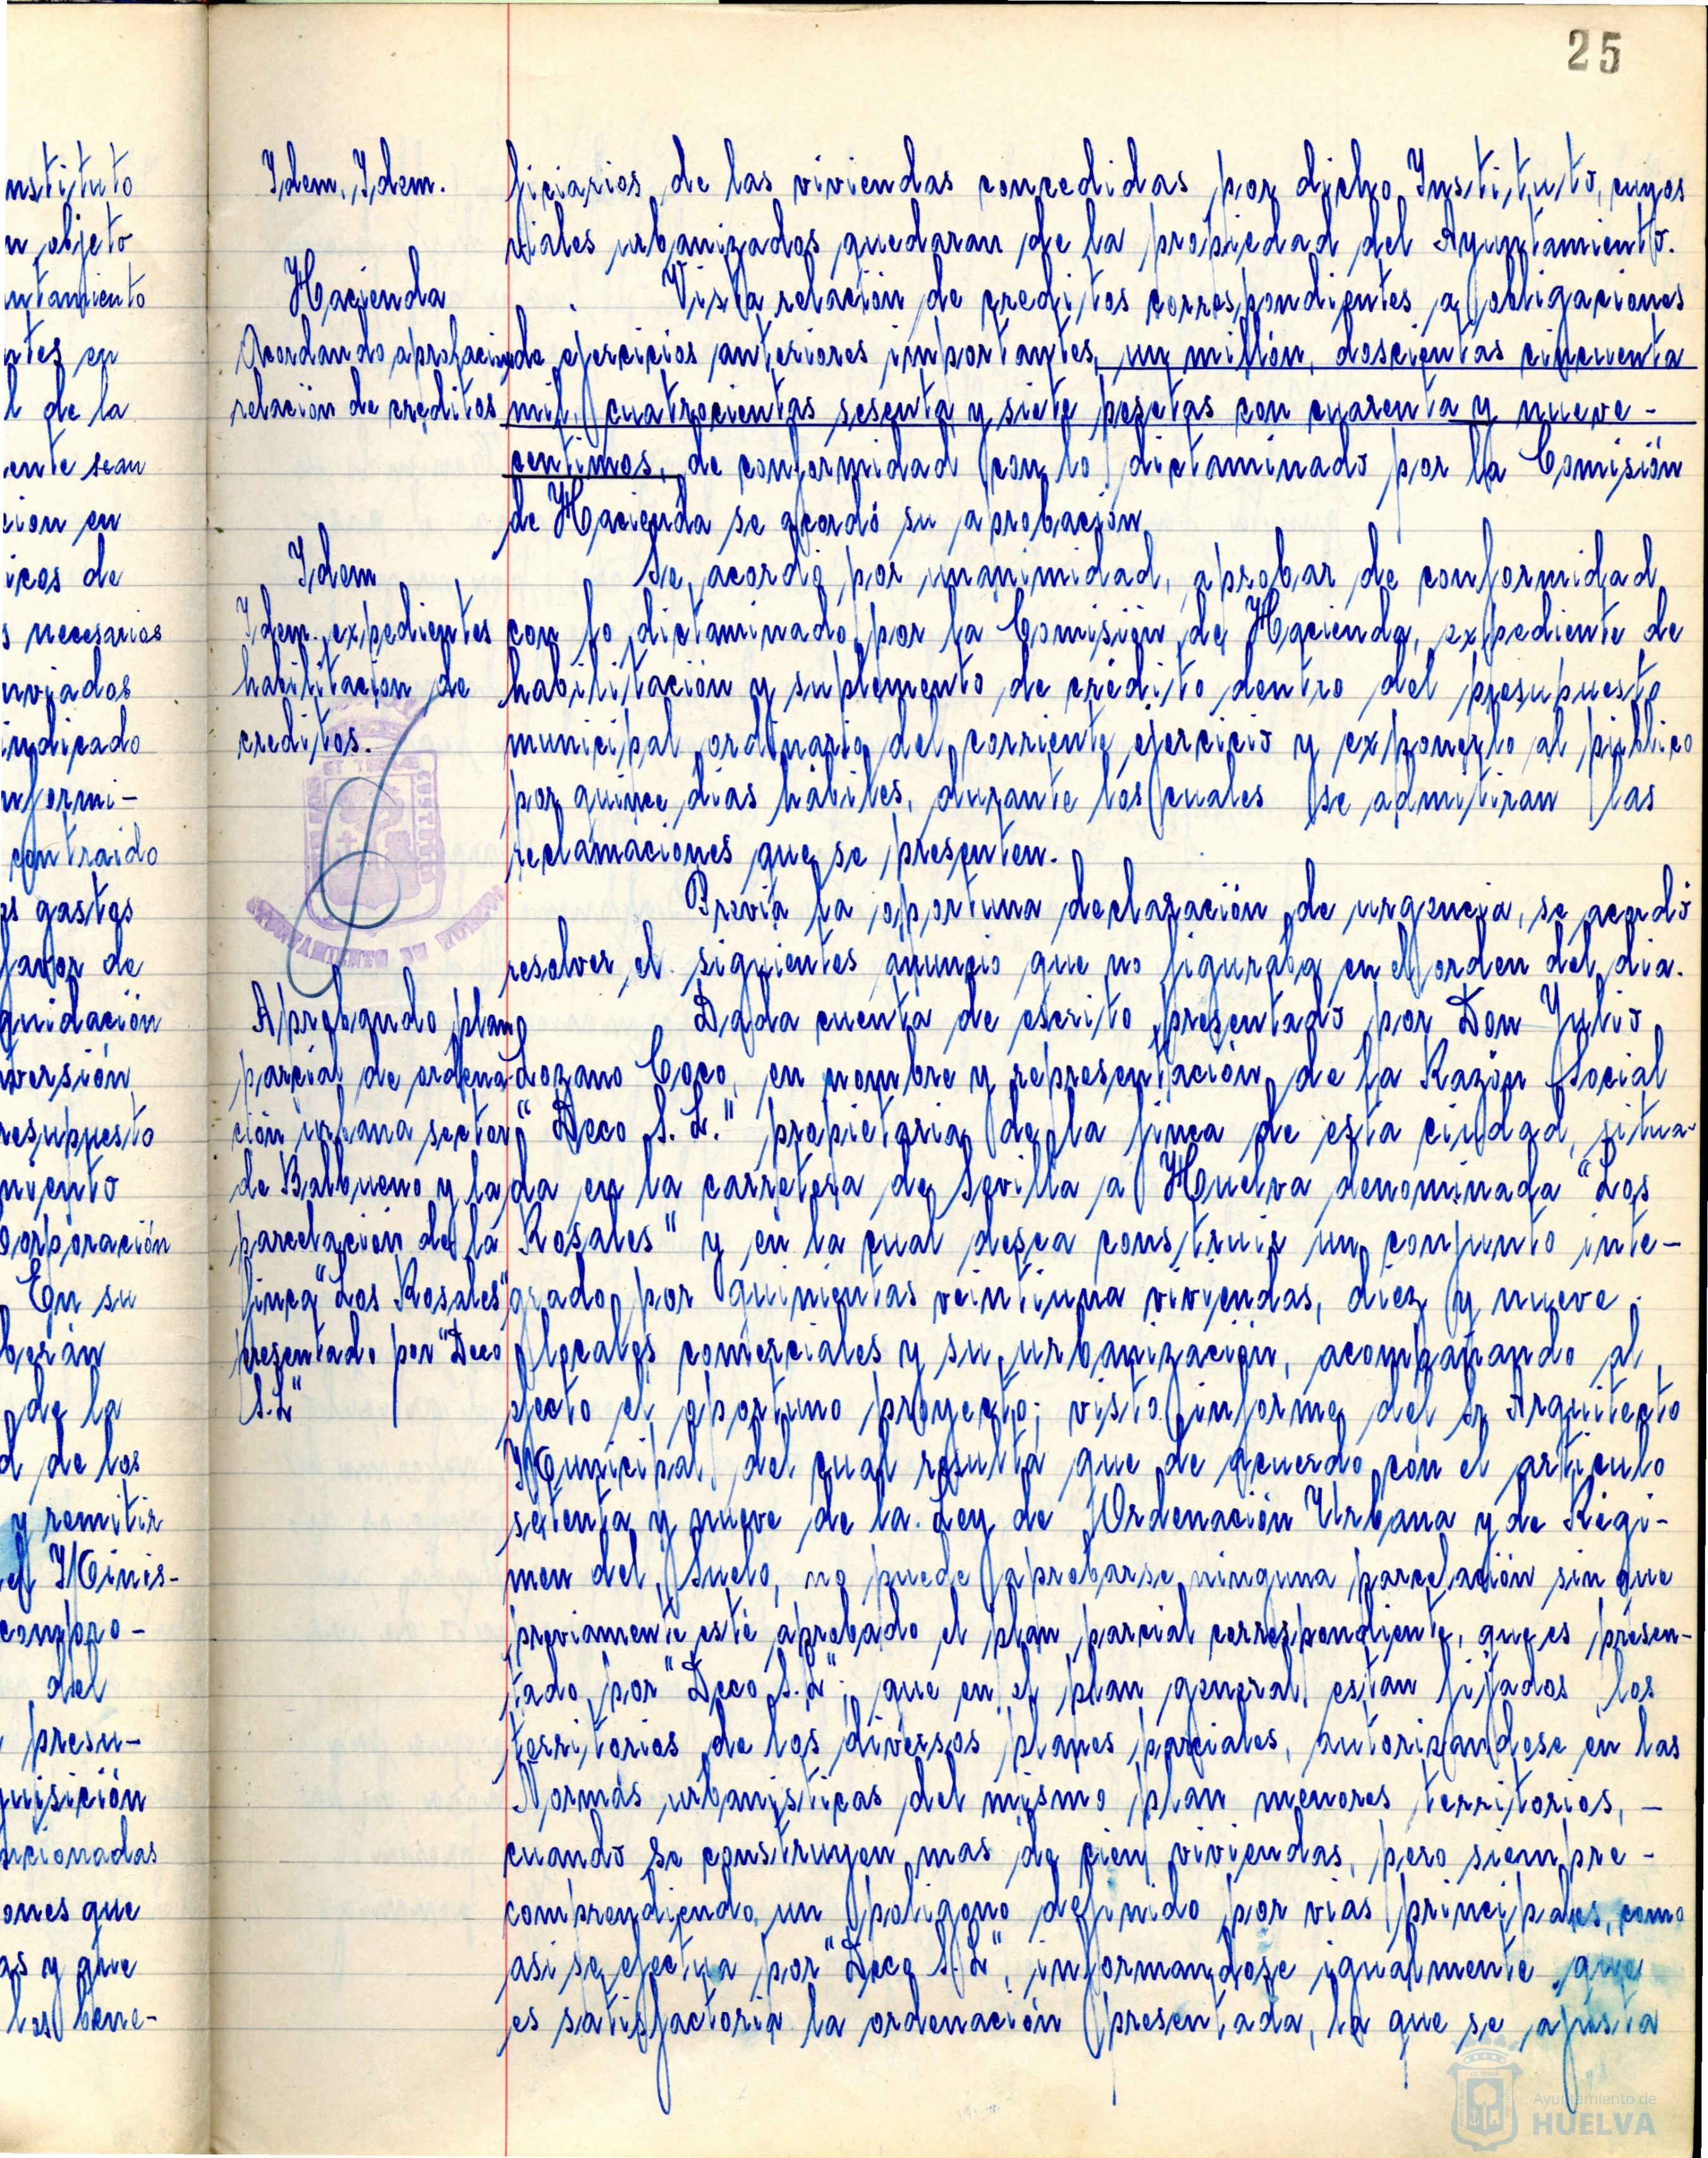 25
nstituto
n objeto
untamiento
ntes en
l de la
ente sean
cion en
icos de
s necesarios
nviados
indicado
nformi-
contraido
os gastos
favor de
quidación
versión
resupuesto
miento
orporación
En su
berán
de la
d de los
y remitir
el Minis-
compro-
del
presu-
quisición
dicionadas
ones que
as y que
los bene-
Idem. Idem.
Hacienda
Acordando aprobación
relación de creditos
Idem
Idem. expedientes
habilitación de
creditos.
AYUNTAMIENTO DE HUELVA
Aprobando plan
parcial de ordena-
ción urbana sector
de Balbueno y la
parcelación de la
finca "Los Rosales"
presentado por "Deco
S.L"
ficiarios de las viviendas concedidas por dicho Instituto, cuyos
viales urbanizados quedaran de la propiedad del Ayuntamiento.
Vista relación de creditos correspondientes a obligaciones
de ejercicios anteriores importantes, un millón, doscientas cincuenta
mil, cuatrocientas sesenta y siete pesetas con cuarenta y nueve -
centimos, de conformidad con lo dictaminado por la Comisión
de Hacienda se acordó su aprobación
Se acordó por unanimidad, aprobar de conformidad
con lo dictaminado por la Comisión de Hacienda, expediente de
habilitación y suplemento de crédito dentro del presupuesto
municipal ordinario del corriente ejercicio y exponerlo al público
por quince dias hábiles, durante los cuales se admitiran las
reclamaciones que se presenten.
Previa la oportuna declaración de urgencia, se acordó
resolver el siguientes anuncio que no figuraba en el orden del dia.
Dada cuenta de escrito presentado por Don Julio
Lozano Coco, en nombre y representación de la Razón Social
"Deco S.L." propietaria de la finca de esta ciudad, situa-
da en la carretera de Sevilla a Huelva denominada "Los
Rosales" y en la cual desea construir un conjunto inte-
grado por quinientas veintiuna viviendas, diez y nueve
locales comerciales y su urbanización, acompañando al
efecto el oportuno proyecto; visto informe del Sr Arquitecto
Municipal, del cual resulta que de acuerdo con el articulo
setenta y nueve de la Ley de Ordenación Urbana y de Régi-
men del Suelo, no puede aprobarse ninguna parcelación sin que
previamente esté aprobado el plan parcial correspondiente, que es presen-
tado por "Deco S.L"; que en el plan general estan fijados los
territorios de los diversos planes parciales, autorizandose en las
Normas urbanisticas del mismo plan menores territorios, -
cuando se construyen mas de cien viviendas, pero siempre -
comprendiendo un poligono definido por vias principales, como
asi se efectua por "Deco S.L", informandose igualmente que
es satisfactoria la ordenación presentada, la que se ajusta
Ayuntamiento de
HUELVA